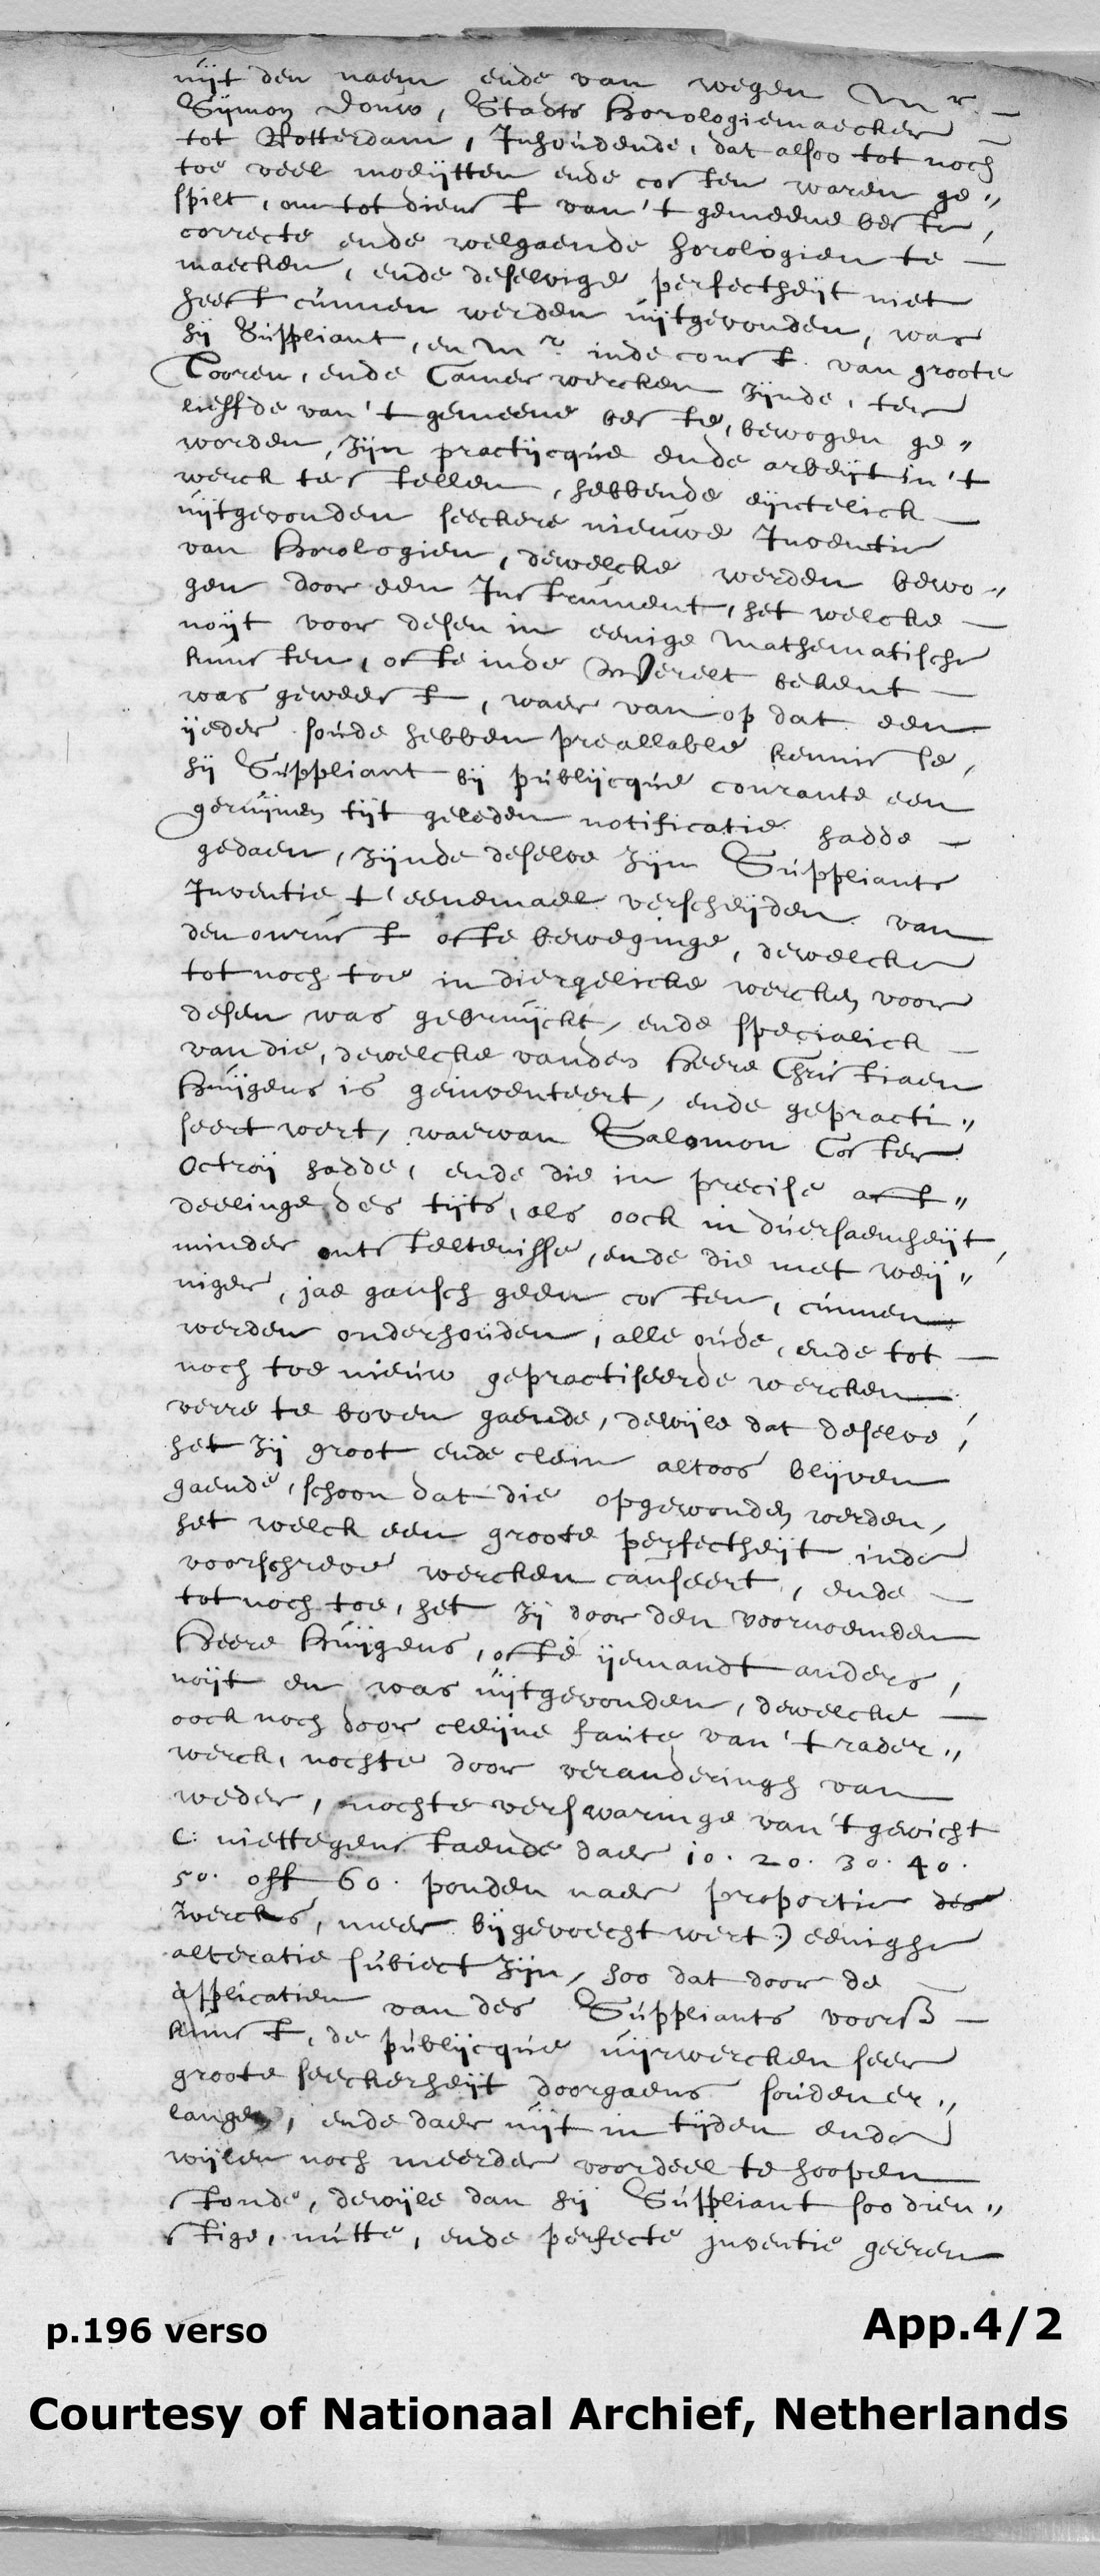 uijt den naem ende van wegen Mr.
Sijmon Douw, Stadts Horologiemaecker
tot Rotterdam, Inhoudende, dat alsoo tot noch
toe veel moeijtten ende costen waren ge„
spilt, om tot dienst van 't gemeene beste,
correcte ende welgaende horologien te
maecken, ende deselvige perfectheijt niet
heeft cunnen werden uijtgevonden, was
hij Suppliant, en Mr. inde const van groote
Tooren, ende Camer wercken zijnde, ter
lieffde van 't gemeene beste, bewogen ge„
worden, zijn practijcque ende arbeijt in 't
werck te stellen, hebbende eijntelick
uijtgevonden seeckere nieuwe Inventie
van Horologien, dewelcke werden bewo„
gen door een Instrument, het welcke
noijt voor desen in eenige Mathematische
kunsten, ofte inde Werelt bekent
was geweest, waer van op dat een
ijeder soude hebben preallable kennisse,
hij Suppliant bij publijcque courante een
geruijmen tijt geleden notificatie hadde
gedaen, zijnde deselve zijn Suppliants
Inventie t'eenemael verscheijden van
den onrust ofte beweginge, dewelcke
tot noch toe in diergelicke wercken voor
desen was gebruijckt, ende specialick
van die, dewelcke vanden Heere Christiaen
Huijgens is geinventeert, ende gepracti„
seert wert, waervan Salomon Coster
Octroij hadde, ende die in precise aff„
deelinge des tijts, als oock in duersaemheijt,
minder ontsteltenisse, ende die met weij„
niger, jae gansch geen costen, cunnen
werden onderhouden, alle oude, ende tot
noch toe nieuw gepractiseerde wercken
verre te boven gaende, dewijle dat deselve,
het zij groot ende clein altoos blijven
gaende, schoon dat die opgewonden werden,
het welck een groote perfectheijt inde
voorschreve wercken causeert, ende
tot noch toe, het zij door den voornoemden
Heere Huijgens, ofte ijemandt anders,
noijt en was uijtgevonden, dewelcke
oock noch door cleijne faute van 't rader„
werck, nochte door veranderingh van
weder, nochte verswaringe van 't gewicht
(: niettegenstaende daer 10. 20. 30. 40.
50. off 60. ponden naer proportie des
wercks, meer bijgevoecht wert:) eenighe
alteratie subiect zijn, soo dat door de
applicatien van des Suppliants voorß
kunst, de publijcque uijrwercken seer
groote seeckerheijt doorgaens souden er„
langen, ende daer uijt in tijden ende
wijlen noch meerder voordeel te hoopen
stonde, dewijle dan hij Suppliant soo dien„
stige, nutte, ende perfecte inventie geeren
p.196 verso
App.4/2
Courtesy of Nationaal Archief, Netherlands